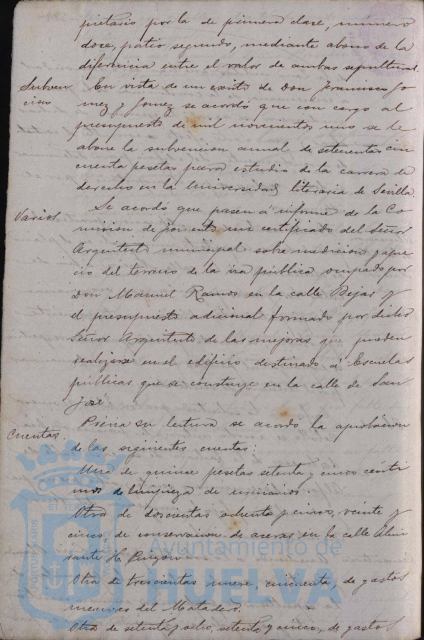 pietario por la de primera clase, número
doce, patio segundo, mediante abono de la
diferencia entre el valor de ambas sepulturas.
Subven
ciones
En vista de un escrito de Don Francisco Jo
mez y Jomez se acordó que con cargo al
presupuesto de mil novecientos uno se le
abone la subvencion anual de setecientas cin
cuenta pesetas para estudio de la carrera de
derecho en la Universidad literaria de Sevilla.
Varios
Se acordó que pasen á informe de la Co
mision de un certificado del Señor
Arquitecto municipal sobre medicion y apre
cio del terreno de la via pública ocupado por
Don Manuel Ramos en la calle Bejar y
el presupuesto adicional formado por dicho
Señor Arquitecto de las mejoras que pueden
realizarse en el edificio destinado á Escuelas
públicas que se construye en la calle de San
José
Cuentas
Prévia su lectura se acordó la aprobacion
de las siguientes cuentas:
Una de quince pesetas setenta y cinco cénti
mos de limpieza de urinarios.
Otra de doscientas ochenta y cinco, veinte y
cinco, de conservacion de aceras en la calle Almi
rante H. Pinzon.
Otra de trescientas nueve, cincuenta, de gastos
menores del Matadero.
Otra de setenta y ocho, setenta y cinco, de gastos
Ayuntamiento de
HUELVA